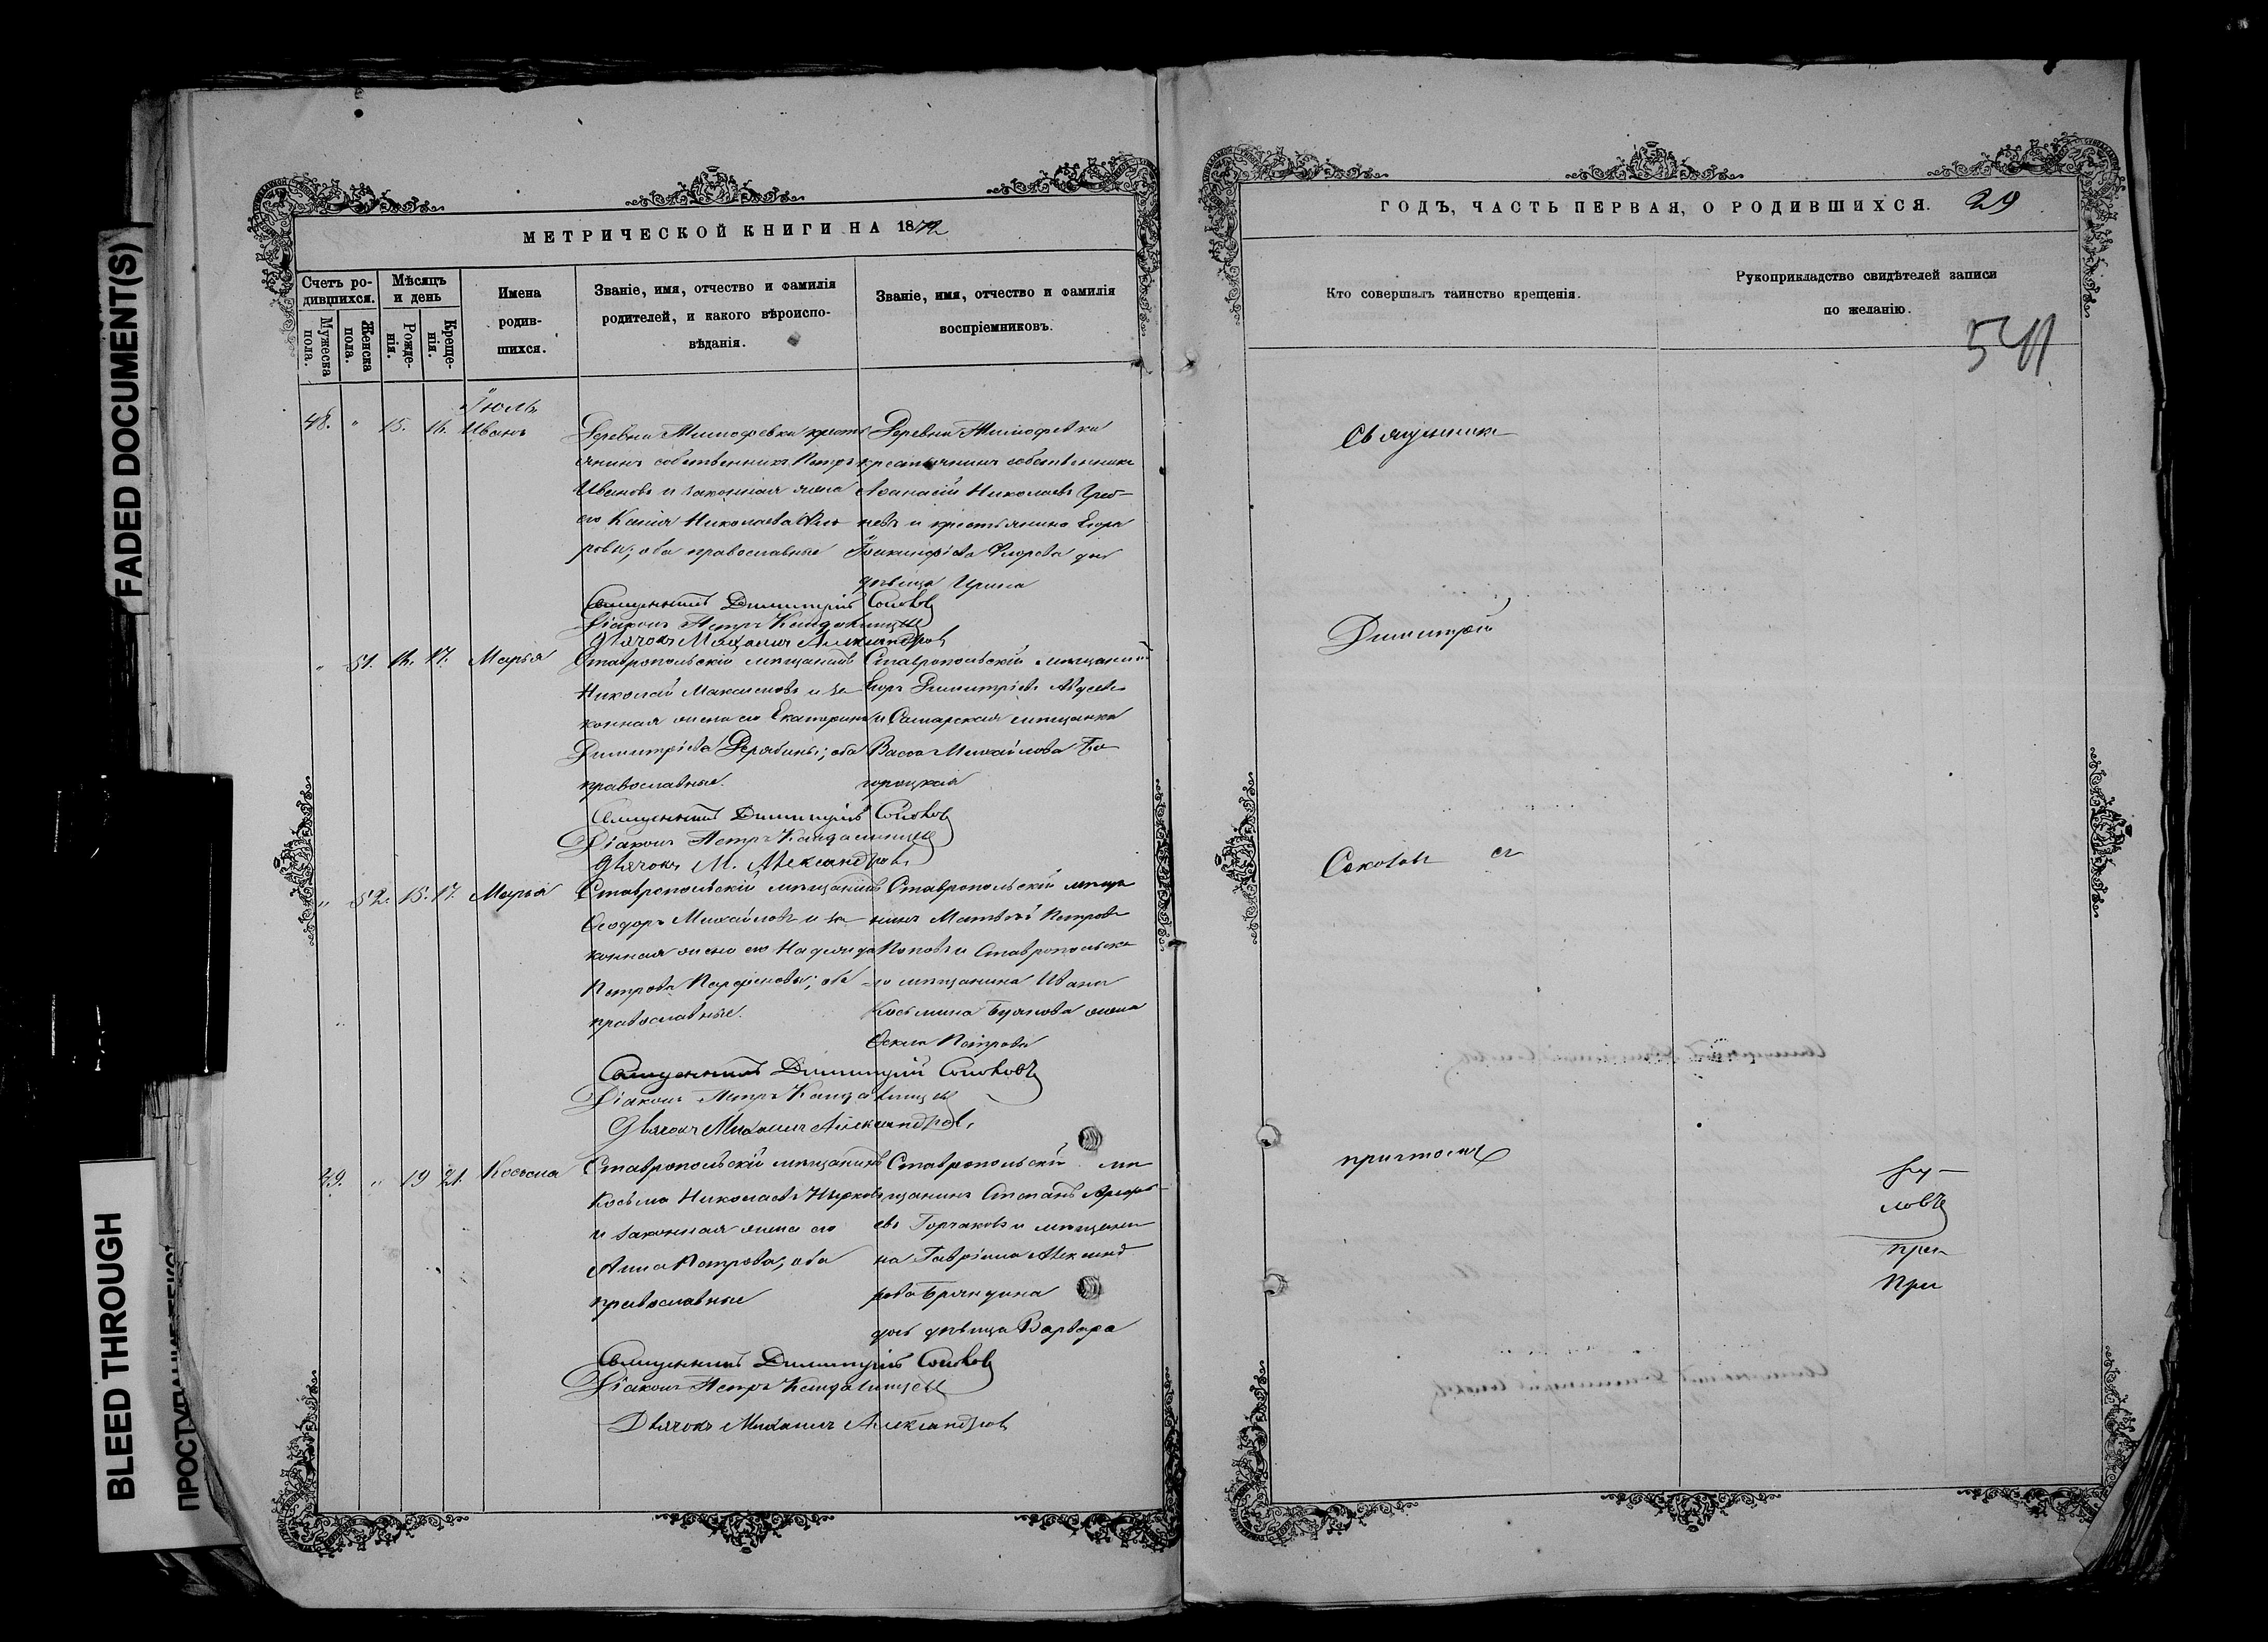 FADED DOCUMENT(S)
BLEED THROUGH
МЕТРИЧЕСКОЙ КНИГИ НА 1872
Счетъ ро-
дившихся.
Мужеска
пола.
Женска
пола.
Мѣсяцъ
и день
Рожде-
нія.
Креще-
нія.
Имена
родив-
шихся.
Званіе, имя, отчество и фамилія
родителей, и какого вѣроиспо-
вѣданія.
Званіе, имя, отчество и фамилія
воспріемниковъ.
Іюль
48. " 15. 16. Иванъ
Деревни Тимофевки кресть
янинъ собственникъ Петръ
Ивановъ и законная жена
его Ксенія Николаева
ровы; оба православные
Деревни Тимофевки
крестьянинъ собственникъ
Аѳанасій Николаевъ
невъ и крестьянина Егора
дочь
дѣвица Ирина
Священникъ Димитрій Соковъ
Діаконъ Петръ
Дьячокъ Михаилъ Александровъ
" 51. 16. 17. Марья
Ставропольскій мѣщанинъ
Николай Максимовъ и за
конная жена его Екатерина
Димитріева Дерябины; оба
православные.
Ставропольскій мѣщанинъ
Егоръ Димитріевъ
и Самарская мѣщанка
Васса Михайлова
Священникъ Димитрій Соковъ
Діаконъ Петръ
Дьячокъ М. Александровъ
" 52. 15. 17. Марья
Ставропольскій мѣщанинъ
Ѳеодоръ Михайловъ и за
конная жена его Надежда
Петрова Парфеновы; оба
православные.
Ставропольскій мѣща
нинъ Матвѣй Петровъ
Поповъ и Ставропольска
го мѣщанина Ивана
Косьмина Буянова жена
Ѳекла Петрова
Священникъ Димитрій Соковъ
Діаконъ Петръ
Дьячокъ Михаилъ Александровъ
49. " 19 21. Косьма
Ставропольскій мѣщанинъ
Косьма Николаевъ
и законная жена его
Анна Петрова, оба
православные
Ставропольскій мѣ
щанинъ Степанъ
евъ Горчаковъ и мѣщани
на Гавріила Александ
рова Бряндина
дочь дѣвица Варвара
Священникъ Димитрій Соковъ
Діаконъ Петръ
Дьячокъ Михаилъ Александровъ
ГОДЪ, ЧАСТЬ ПЕРВАЯ, О РОДИВШИХСЯ. 29
Кто совершалъ таинство крещенія.
Рукоприкладство свидѣтелей записи
по желанію.
541
Священникъ
Димитрій
Соковъ съ
причтомъ
ловъ
при
при